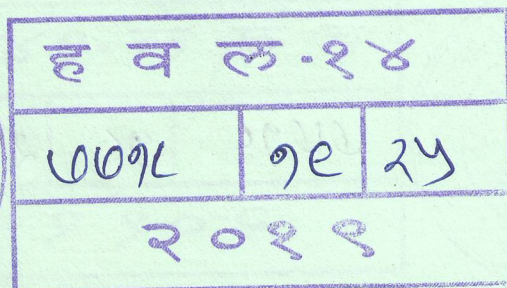 ह व ल - १४
७७१८ १९ २५
२०१९